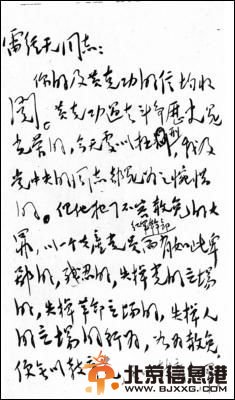 雷经天同志：
你的及黄克功的信均收
阅。黄克功过去斗争历史是
光荣的，今天处以极刑，我及
党中央的同志都是为之惋惜
的。但他犯了不容赦免的大
罪，以一个共产党员红军干部而有如此卑
鄙的，残忍的，失掉党的立场
的，失掉革命立场的，失掉人
的立场的行为，如为赦免，
便无以教
北京信息港
WWW.BJXXG.COM